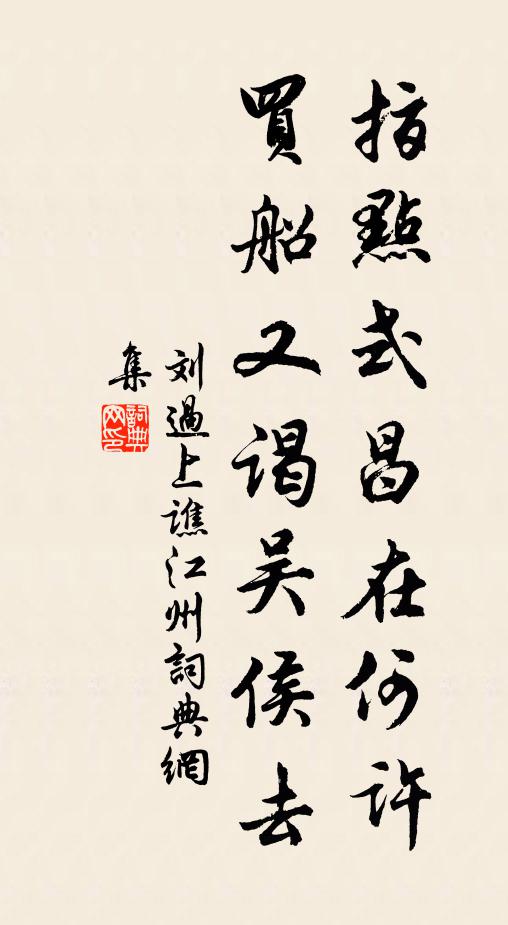 指點武昌在何許
買船又謁吴侯去
刘過上譙江州詞典網
集
詞典網印